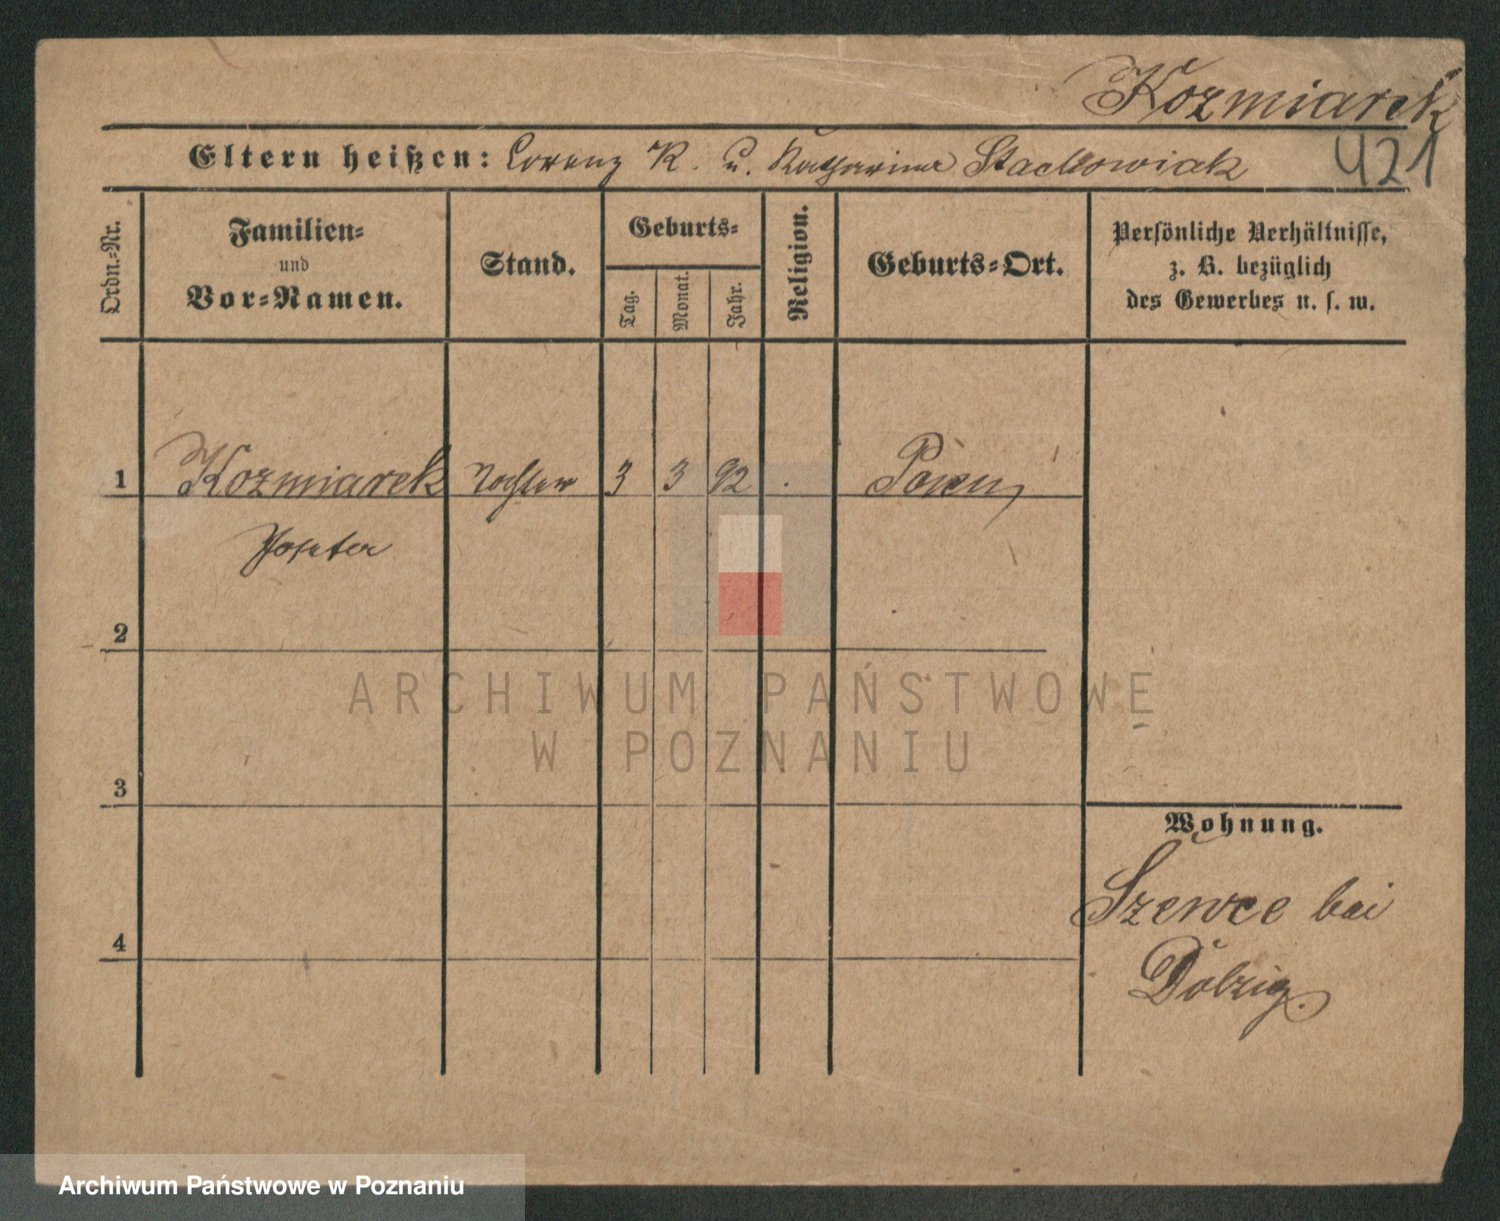 Kozmiarek
Eltern heißen: Lorenz K. u. Katharina Stachowiak
421
Ordn.-Nr.
Familien-
und
Vor-Namen.
Stand.
Geburts-
Tag.
Monat.
Jahr.
Religion.
Geburts-Ort.
Persönliche Verhältnisse,
z. B. bezüglich
des Gewerbes u. s. w.
1 Kozmiarek Tochter 3 3 92 . Posen
2
3
4
Wohnung.
Szewce bei
Dolzig.
ARCHIWUM PAŃSTWOWE
W POZNANIU
Archiwum Państwowe w Poznaniu